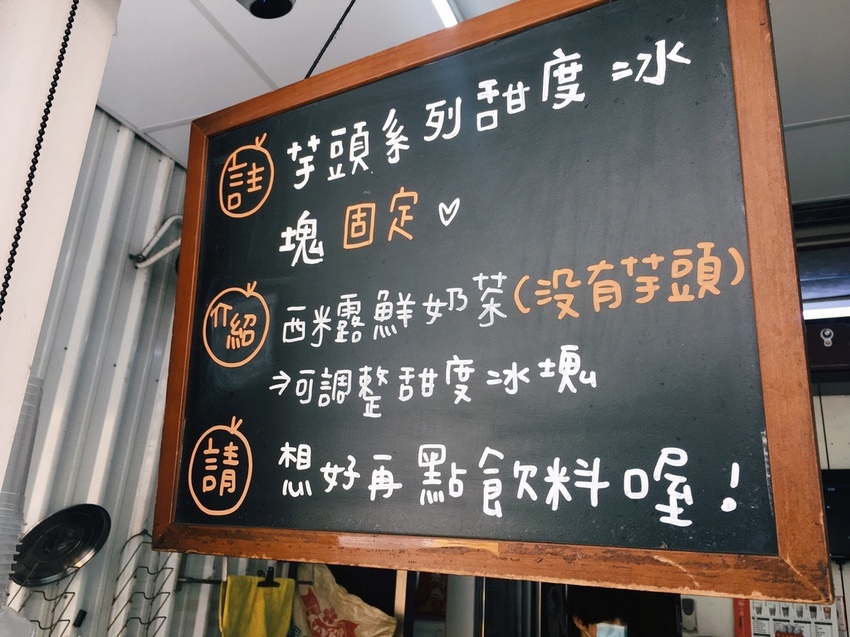 註 芋頭系列甜度冰
塊 固定♡
介紹 西米露鮮奶茶(沒有芋頭)
⇒可調整甜度冰塊
請 想好再點飲料喔!